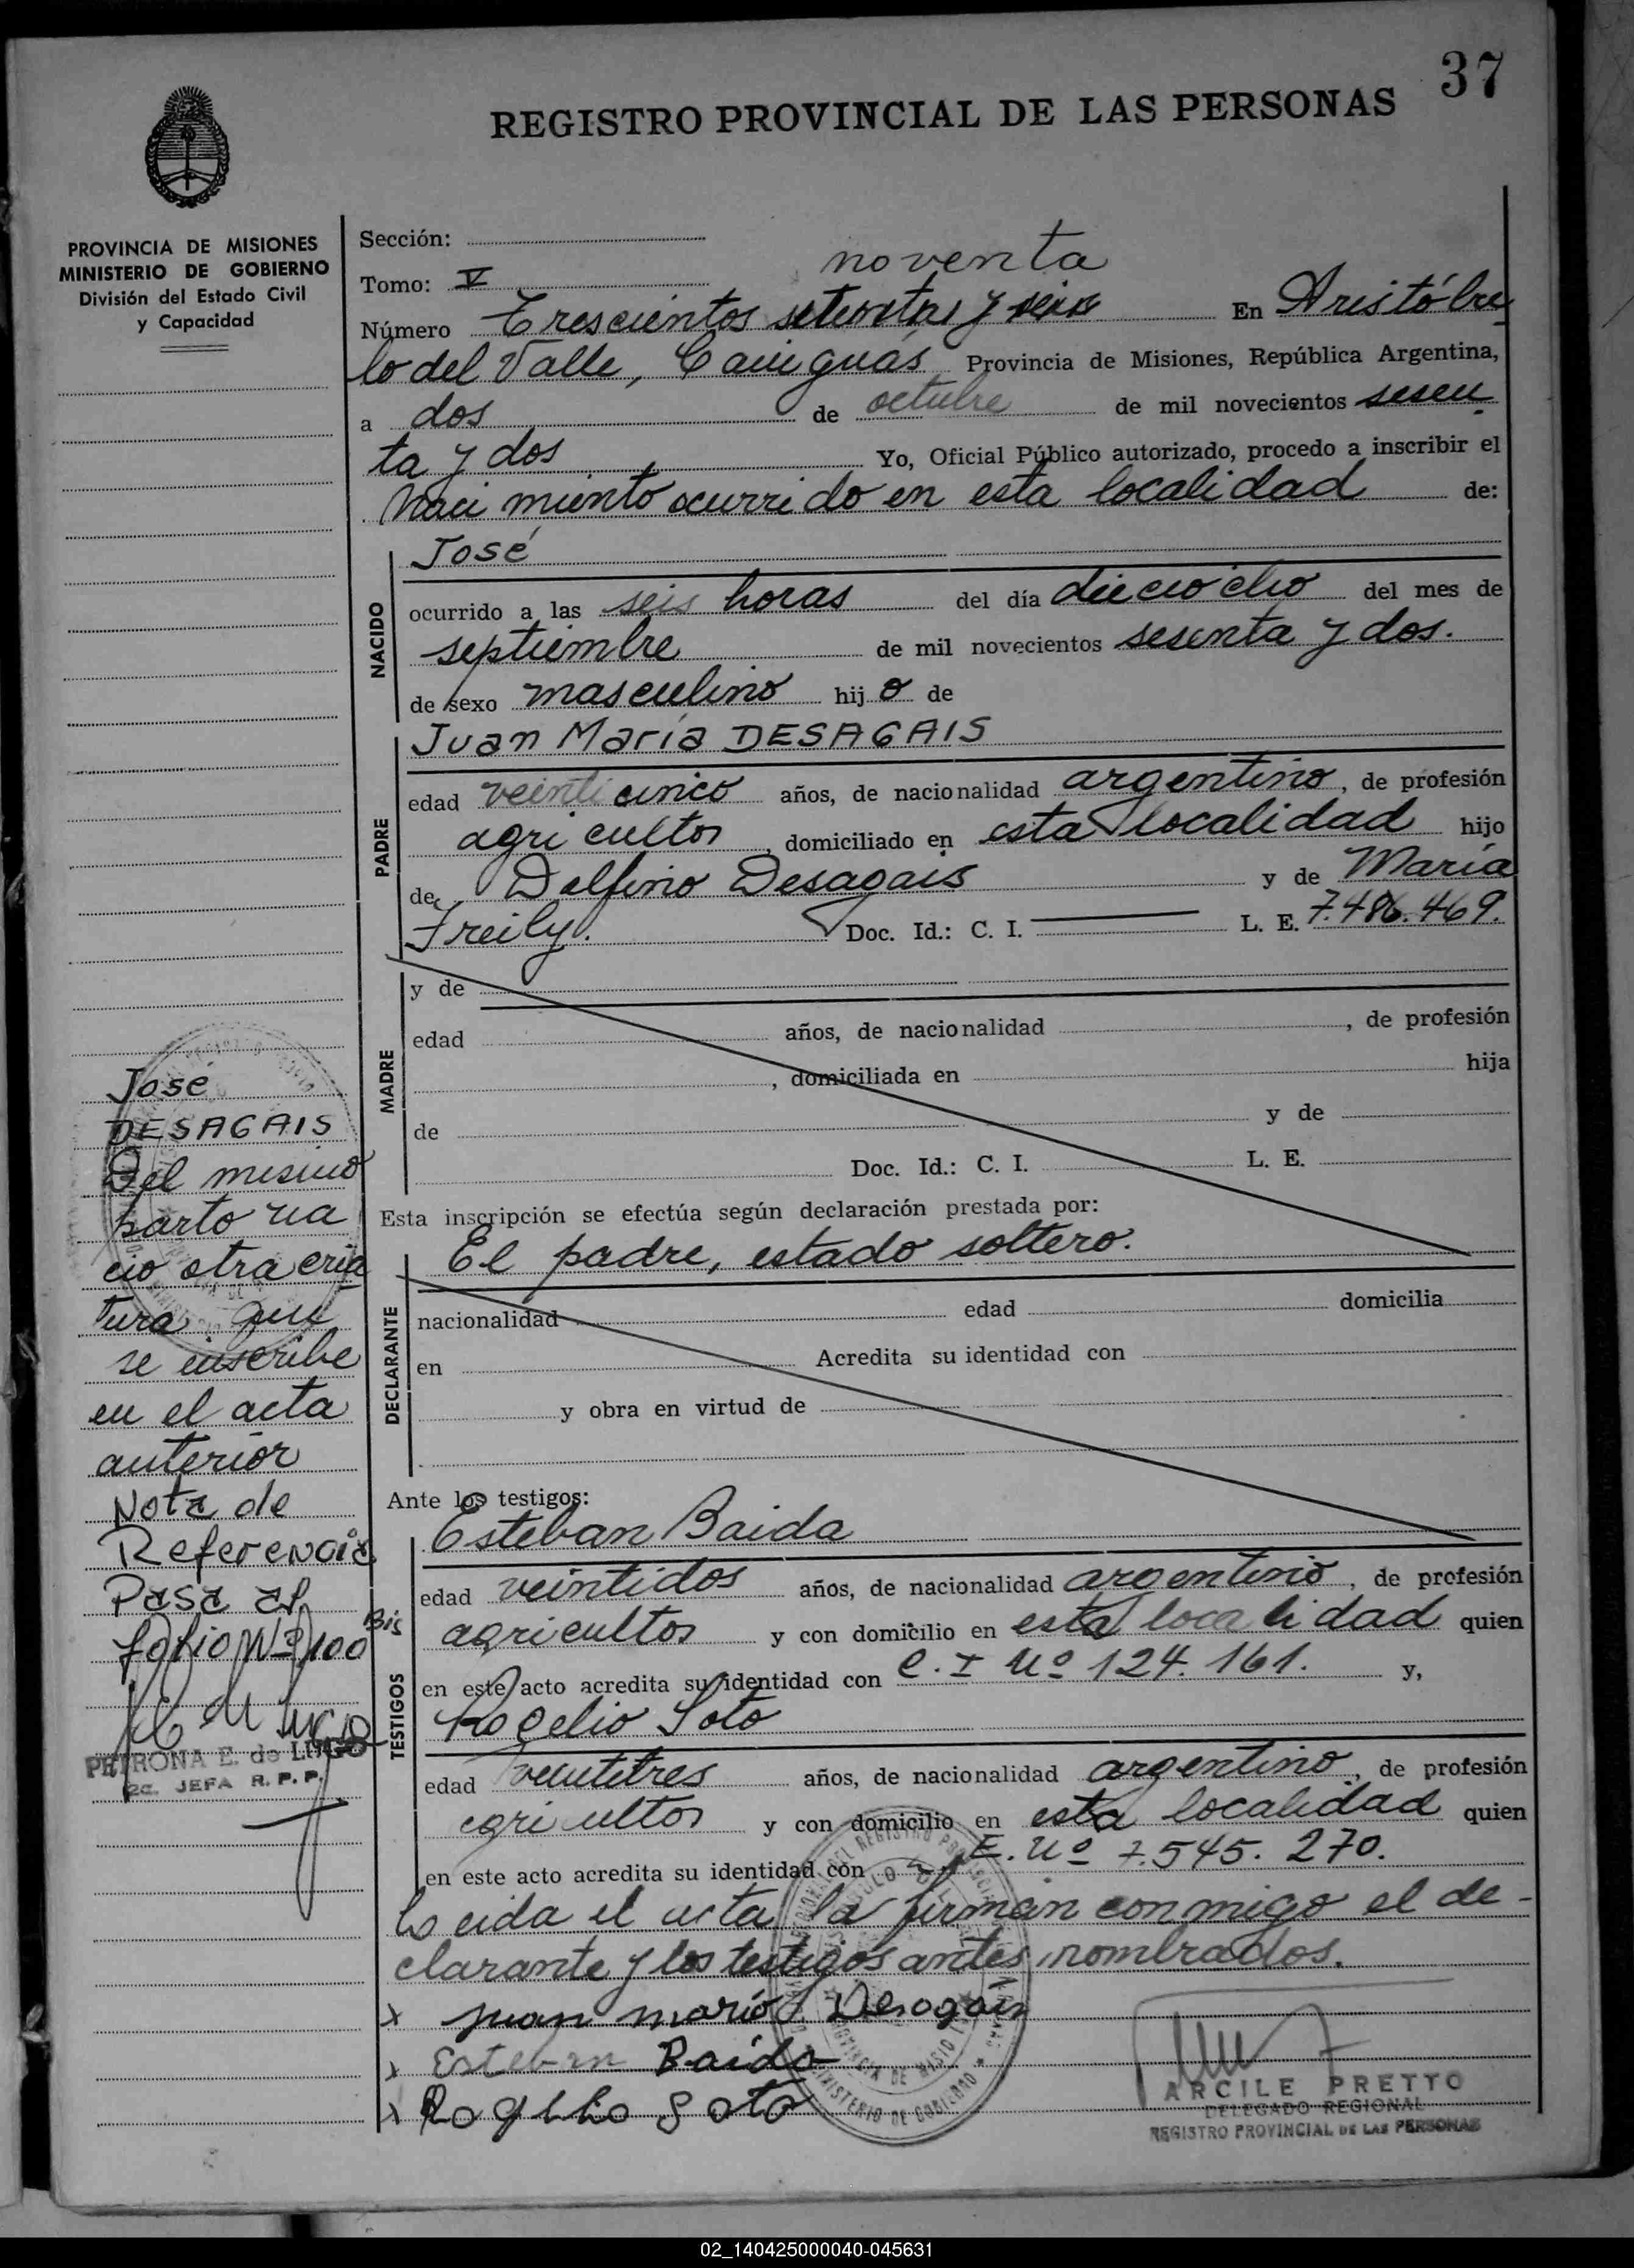 37
REGISTRO PROVINCIAL DE LAS PERSONAS
PROVINCIA DE MISIONES
MINISTERIO DE GOBIERNO
División del Estado Civil
y Capacidad
Sección:
Tomo: V
noventa
Número Trescientos setenta y seis En Aristóbu
lo del Valle, Cainguás Provincia de Misiones, República Argentina,
a dos de octubre de mil novecientos sesen
ta y dos Yo, Oficial Público autorizado, procedo a inscribir el
Naci miento ocurrido en esta localidad de:
NACIDO
José
ocurrido a las seis horas del día dieciocho del mes de
septiembre de mil novecientos sesenta y dos.
de sexo masculino hij o de
PADRE
Juan María DESAGAIS
edad veinticinco años, de nacionalidad argentino, de profesión
agricultor, domiciliado en esta localidad hijo
de Delfino Desagais y de María
Freily. Doc. Id.: C. I. L. E. 7.486.469.
MADRE
y de
edad años, de nacionalidad , de profesión
, domiciliada en hija
de y de
Doc. Id.: C. I. L. E.
Esta inscripción se efectúa según declaración prestada por:
DECLARANTE
El padre, estado soltero.
nacionalidad edad domicilia
en Acredita su identidad con
y obra en virtud de
Ante los testigos:
TESTIGOS
Esteban Baida
edad veintidos años, de nacionalidad argentino, de profesión
agricultor y con domicilio en esta localidad quien
en este acto acredita su identidad con C. I Nº 124.161. y,
Rogelio Soto
edad veintitres años, de nacionalidad argentino, de profesión
agricultor y con domicilio en esta localidad quien
en este acto acredita su identidad con L.E. Nº 7.545.270.
Leida el acta la firman conmigo el de-
clarante y los testigos antes nombrados.
x Juan María Desagais
x Esteban Baida
x Rogelio Soto
ARCILE PRETTO
DELEGADO REGIONAL
REGISTRO PROVINCIAL DE LAS PERSONAS
José
DESAGAIS
Del mismo
parto na
cio otra cria
tura que
se inscribe
en el acta
anterior
Nota de
Referencia
Pasa al
folio Nº 100 Bis
PETRONA E. de LUGO
2a. JEFA R. P. P.
02_140425000040-045631